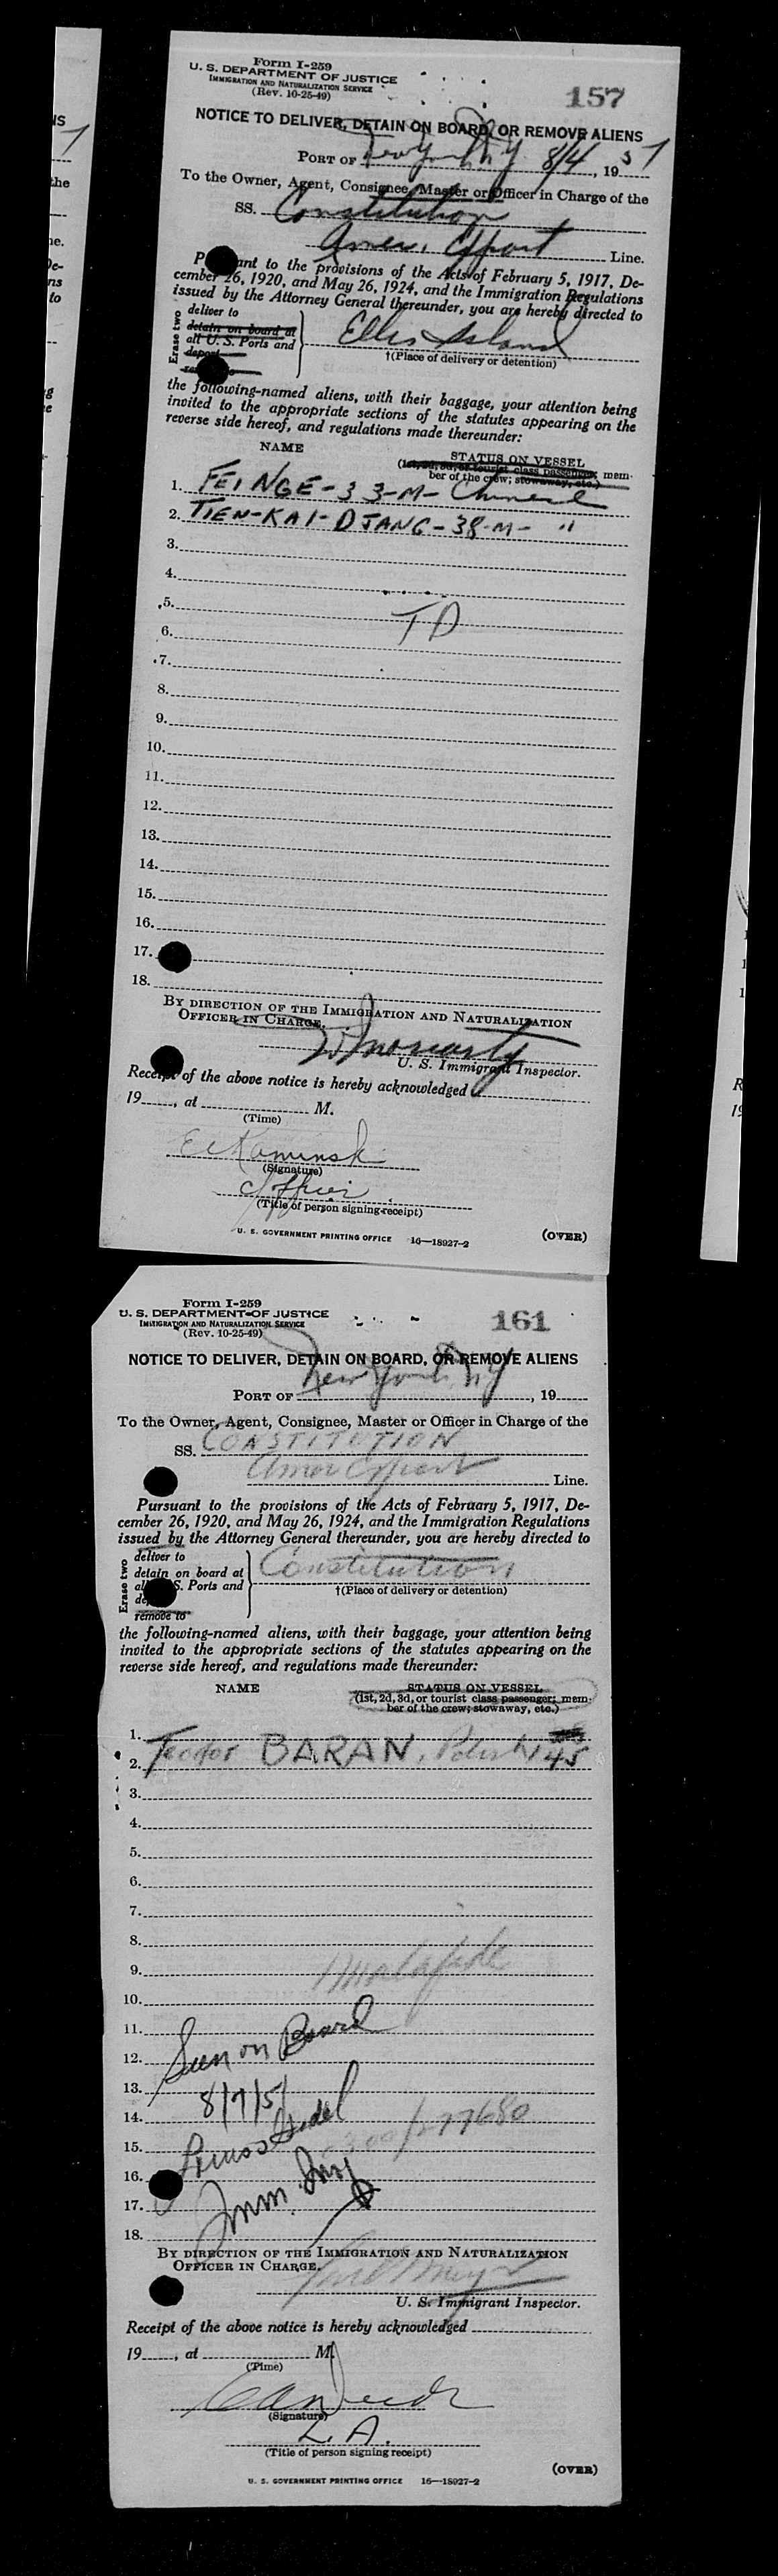 IS
7
the
ne.
De-
ns
to
g
e
Form I-259
U. S. DEPARTMENT OF JUSTICE
IMMIGRATION AND NATURALIZATION SERVICE
(Rev. 10-25-49)
157
NOTICE TO DELIVER, DETAIN ON BOARD, OR REMOVE ALIENS
PORT OF New York NY 8/4, 1951
To the Owner, Agent, Consignee, Master or Officer in Charge of the
SS. Constitution
Amer. Export Line.
P ant to the provisions of the Acts of February 5, 1917, De-
cember 26, 1920, and May 26, 1924, and the Immigration Regulations
issued by the Attorney General thereunder, you are hereby directed to
Erase two
deliver to
detain on board at
all U. S. Ports and
deport
Ellis Island
†(Place of delivery or detention)
the following-named aliens, with their baggage, your attention being
invited to the appropriate sections of the statutes appearing on the
reverse side hereof, and regulations made thereunder:
NAME
STATUS ON VESSEL
(1st, 2d, 3d, or tourist class passenger; mem-
ber of the crew; stowaway, etc.)
1. FEI NGE - 33 - M - Chinese
2. TIEN-KAI-DJANG - 38-M- "
3.
4.
5.
TD
6.
7.
8.
9.
10.
11.
12.
13.
14.
15.
16.
17.
18.
BY DIRECTION OF THE IMMIGRATION AND NATURALIZATION
OFFICER IN CHARGE.
Moriarty
U. S. Immigrant Inspector.
Receipt of the above notice is hereby acknowledged
19 , at M.
(Time)
E Kaminski
(Signature)
C/Officer
(Title of person signing receipt)
U. S. GOVERNMENT PRINTING OFFICE 16—18927-2
(OVER)
1
1
1
R
19
Form I-259
U. S. DEPARTMENT OF JUSTICE
IMMIGRATION AND NATURALIZATION SERVICE
(Rev. 10-25-49)
161
NOTICE TO DELIVER, DETAIN ON BOARD, OR REMOVE ALIENS
PORT OF New York NY , 19
To the Owner, Agent, Consignee, Master or Officer in Charge of the
SS. CONSTITUTION
Amer Export Line.
Pursuant to the provisions of the Acts of February 5, 1917, De-
cember 26, 1920, and May 26, 1924, and the Immigration Regulations
issued by the Attorney General thereunder, you are hereby directed to
Erase two
deliver to
detain on board at
al S. Ports and
de
remove to
Constitution
†(Place of delivery or detention)
the following-named aliens, with their baggage, your attention being
invited to the appropriate sections of the statutes appearing on the
reverse side hereof, and regulations made thereunder:
NAME
STATUS ON VESSEL
(1st, 2d, 3d, or tourist class passenger; mem-
ber of the crew; stowaway, etc.)
1.
2. Teodor BARAN, Polish 45
3.
4.
5.
6.
7.
8.
9. malafide
10.
11.
Seen on Board
12.
13.
8/7/51
14.
15.
16.
Imm. Insp
17.
18.
BY DIRECTION OF THE IMMIGRATION AND NATURALIZATION
OFFICER IN CHARGE.
U. S. Immigrant Inspector.
Receipt of the above notice is hereby acknowledged
19 , at M.
(Time)
(Signature)
L. A.
(Title of person signing receipt)
(OVER)
U. S. GOVERNMENT PRINTING OFFICE 16—18927-2